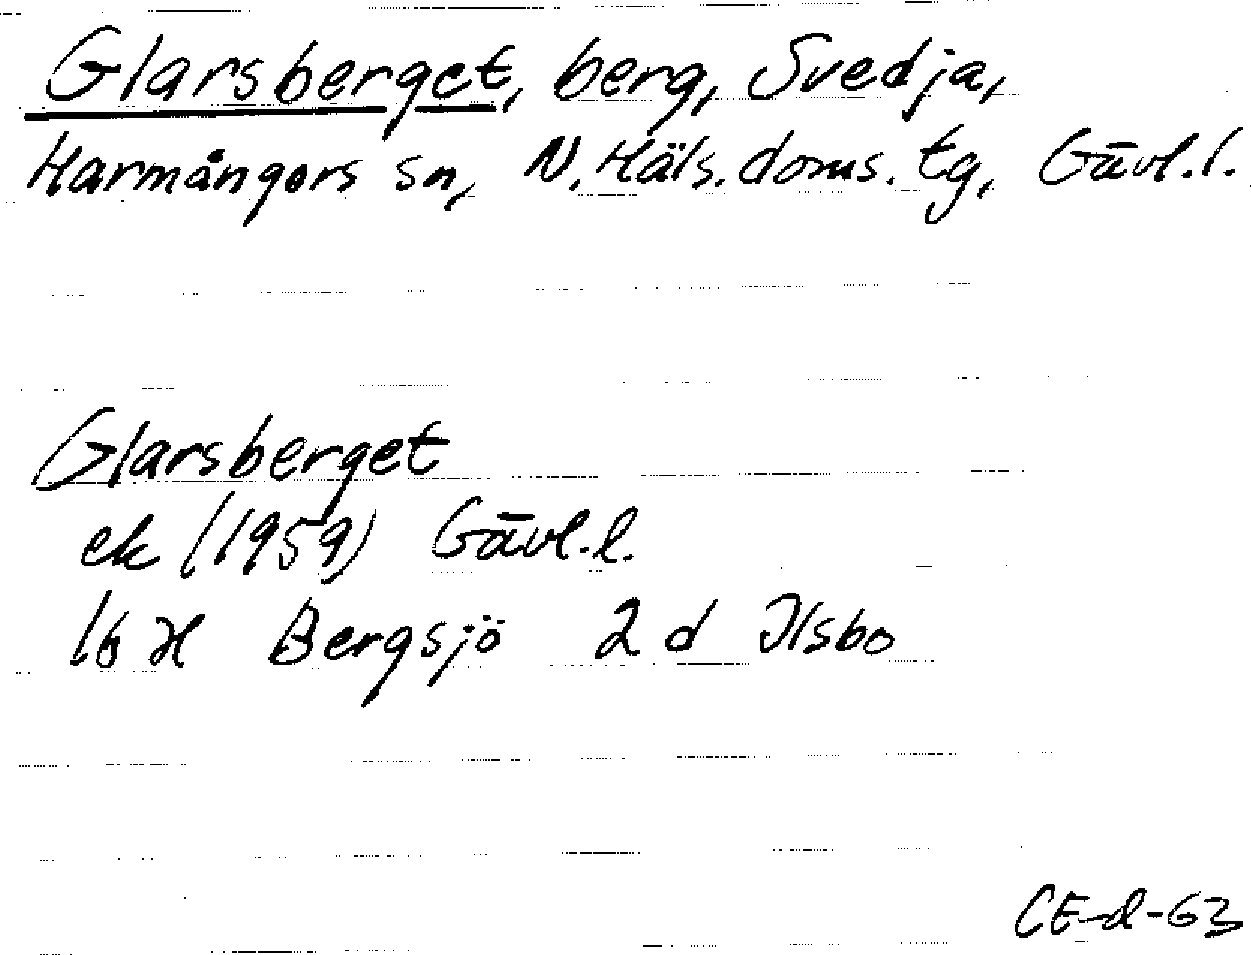 Glarsberget, berg, Svedja,
Harmångers sn, N. Häls. doms. tg, Gävl. l.
Glarsberget
ek (1959) Gävl. l.
16 H Bergsjö 2 d Ilsbo
CE-d-63